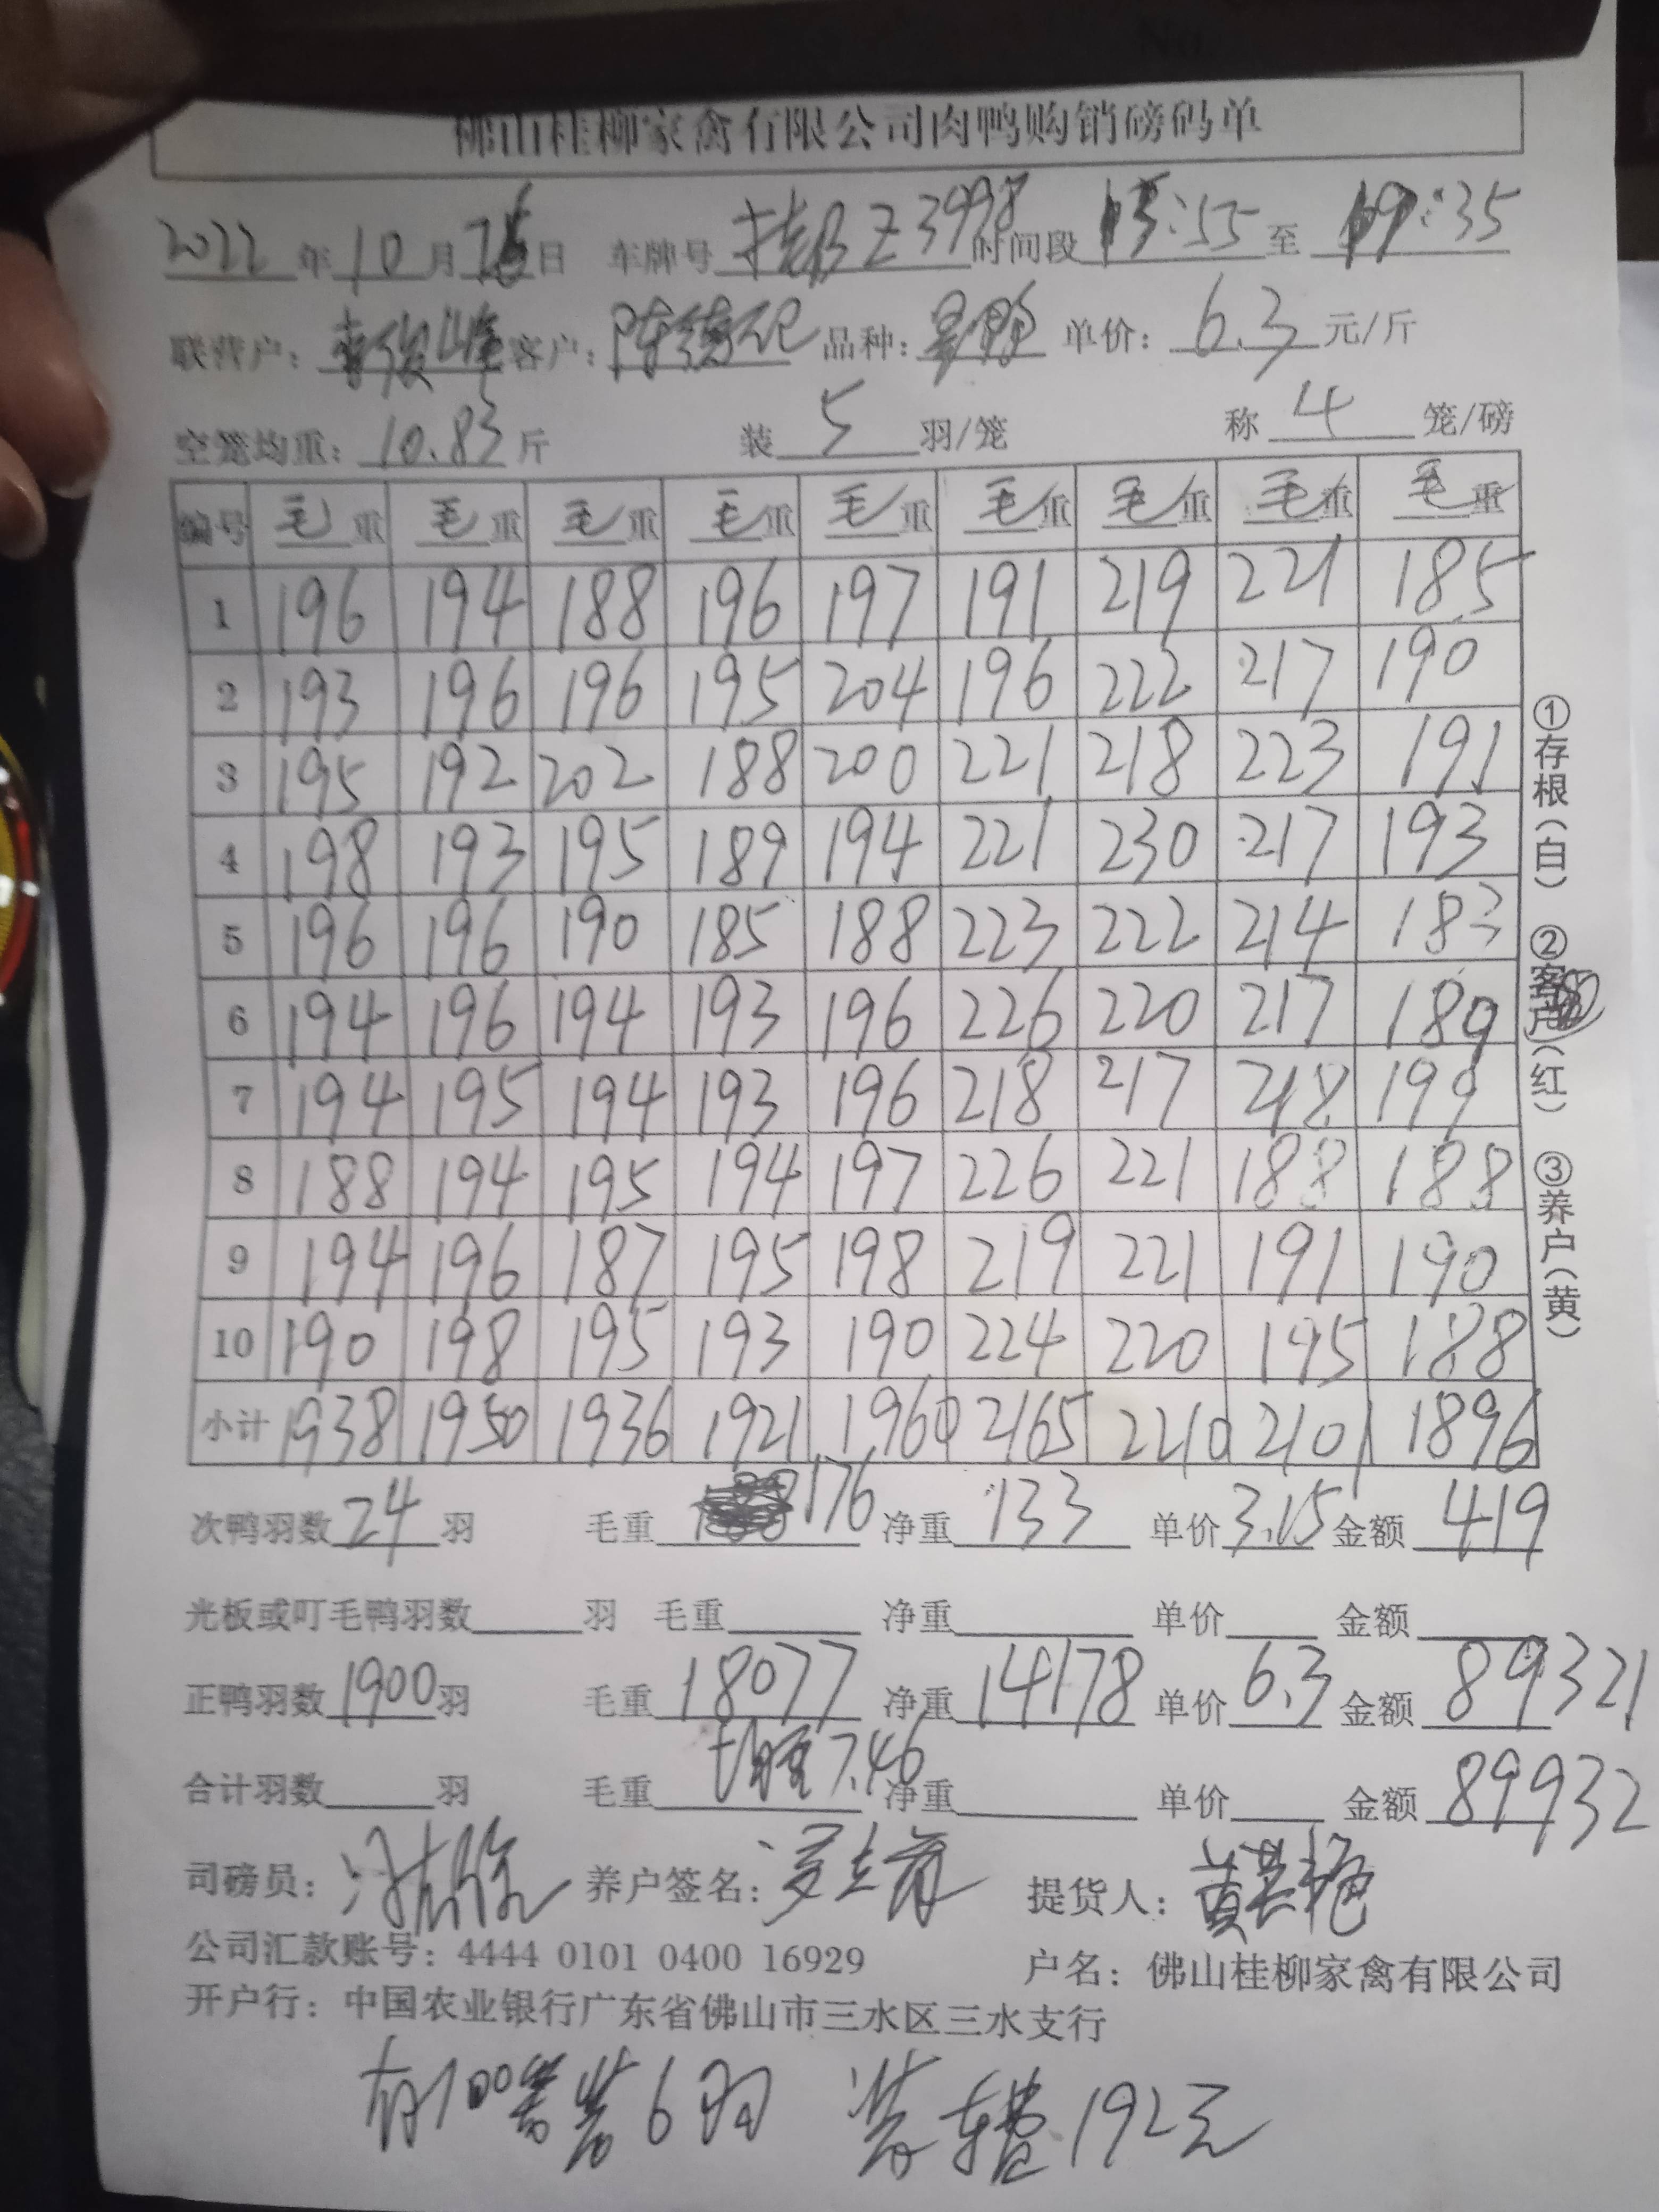 佛山桂柳家禽有限公司肉鸭购销磅码单
2022 年 10 月 日 车牌号 桂 Z3998 时间段 :55 至 19:35
联营户: 李俊峰 客户: 陈德记 品种: 单价: 6.3 元/斤
空笼均重: 10.83 斤 装 5 羽/笼 称 4 笼/磅
编号 毛重 毛重 毛重 毛重 毛重 毛重 毛重 毛重 毛重
1 196 194 188 196 197 191 219 221 185
2 193 196 196 195 204 196 222 217 190
3 195 192 202 188 200 221 218 223 191
4 198 193 195 189 194 221 230 217 193
5 196 196 190 185 188 223 222 214 183
6 194 196 194 193 196 226 220 217 189
7 194 195 194 193 196 218 217 218 199
8 188 194 195 194 197 226 221 188 188
9 194 196 187 195 198 219 221 191 190
10 190 198 195 193 190 224 220 195 188
小计 1938 1950 1936 1921 1960 2165 2210 2101 1896
①存根(白) ②客户(红) ③养户(黄)
次鸭羽数 24 羽 毛重 176 净重 133 单价 3.15 金额 419
光板或叮毛鸭羽数 羽 毛重 净重 单价 金额
正鸭羽数 1900 羽 毛重 18077 净重 14178 单价 6.3 金额 89321
均重 7.46
合计羽数 羽 毛重 净重 单价 金额 89932
司磅员: 养户签名: 提货人: 黄艳
公司汇款账号: 4444 0101 0400 16929 户名: 佛山桂柳家禽有限公司
开户行: 中国农业银行广东省佛山市三水区三水支行
有100笼装6羽 装车费192元